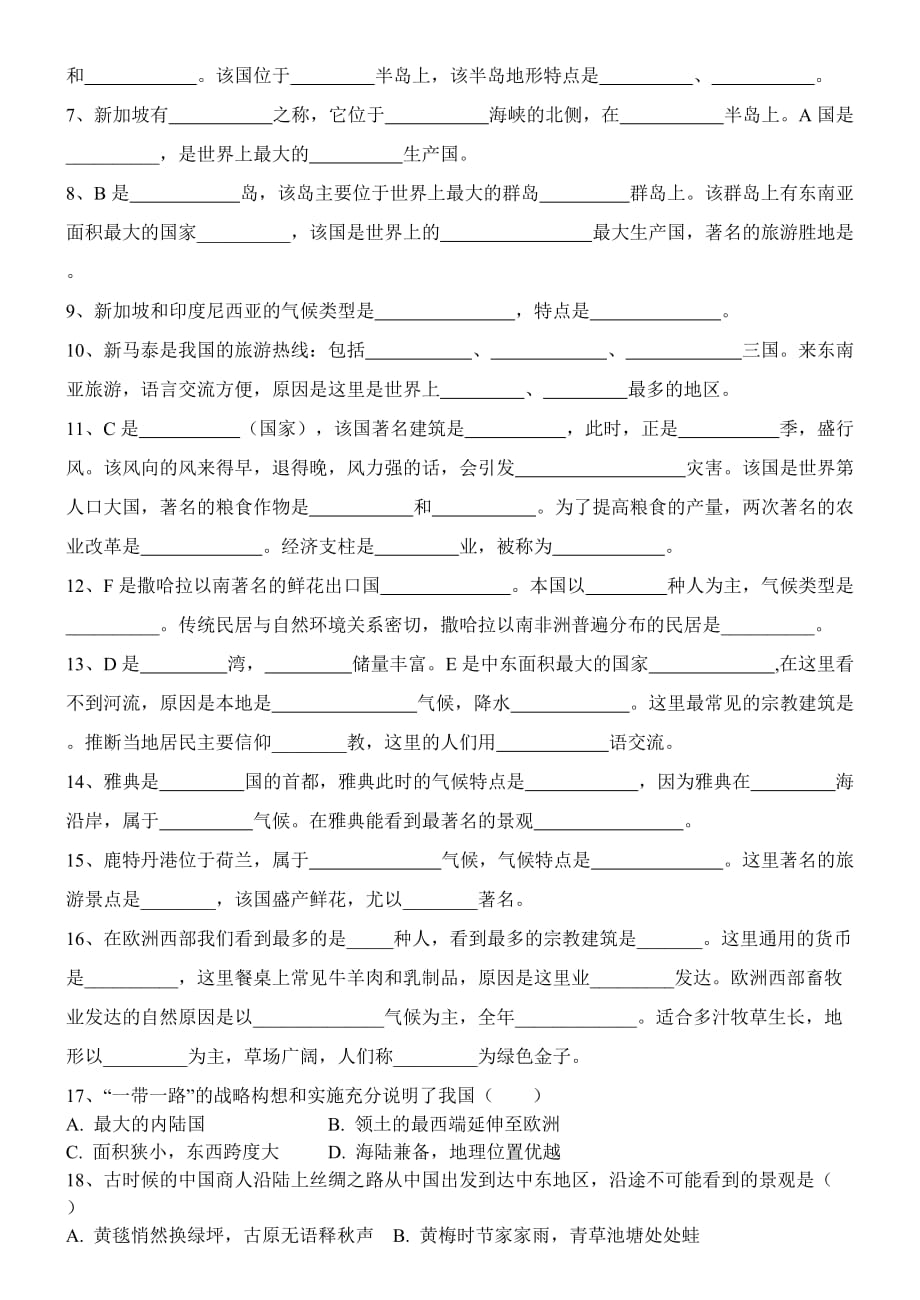 和____________。该国位于_________半岛上，该半岛地形特点是__________、___________。
7、新加坡有___________之称，它位于___________海峡的北侧，在___________半岛上。A 国是
__________，是世界上最大的__________生产国。
8、B 是____________岛，该岛主要位于世界上最大的群岛__________群岛上。该群岛上有东南亚
面积最大的国家__________，该国是世界上的________________最大生产国，著名的旅游胜地是
。
9、新加坡和印度尼西亚的气候类型是_______________，特点是______________。
10、新马泰是我国的旅游热线：包括___________、____________、____________三国。来东南
亚旅游，语言交流方便，原因是这里是世界上_________、_________最多的地区。
11、C 是___________（国家），该国著名建筑是___________，此时，正是___________季，盛行
风。该风向的风来得早，退得晚，风力强的话，会引发__________________灾害。该国是世界第
人口大国，著名的粮食作物是___________和___________。为了提高粮食的产量，两次著名的农
业改革是_____________。经济支柱是_________业，被称为____________。
12、F 是撒哈拉以南著名的鲜花出口国______________。本国以_________种人为主，气候类型是
__________。传统民居与自然环境关系密切，撒哈拉以南非洲普遍分布的民居是__________。
13、D 是_________湾，_________储量丰富。E 是中东面积最大的国家_____________,在这里看
不到河流，原因是本地是_______________气候，降水____________。这里最常见的宗教建筑是
。推断当地居民主要信仰________教，这里的人们用____________语交流。
14、雅典是_________国的首都，雅典此时的气候特点是____________，因为雅典在_________海
沿岸，属于__________气候。在雅典能看到最著名的景观________________。
15、鹿特丹港位于荷兰，属于______________气候，气候特点是______________。这里著名的旅
游景点是________，该国盛产鲜花，尤以________著名。
16、在欧洲西部我们看到最多的是_____种人，看到最多的宗教建筑是_______。这里通用的货币
是__________，这里餐桌上常见牛羊肉和乳制品，原因是这里业_________发达。欧洲西部畜牧
业发达的自然原因是以______________气候为主，全年_____________。适合多汁牧草生长，地
形以_________为主，草场广阔，人们称_________为绿色金子。
17、“一带一路”的战略构想和实施充分说明了我国（　　）
A. 最大的内陆国　　B. 领土的最西端延伸至欧洲
C. 面积狭小，东西跨度大　　D. 海陆兼备，地理位置优越
18、古时候的中国商人沿陆上丝绸之路从中国出发到达中东地区，沿途不可能看到的景观是（
）
A. 黄毯悄然换绿坪，古原无语释秋声　B. 黄梅时节家家雨，青草池塘处处蛙